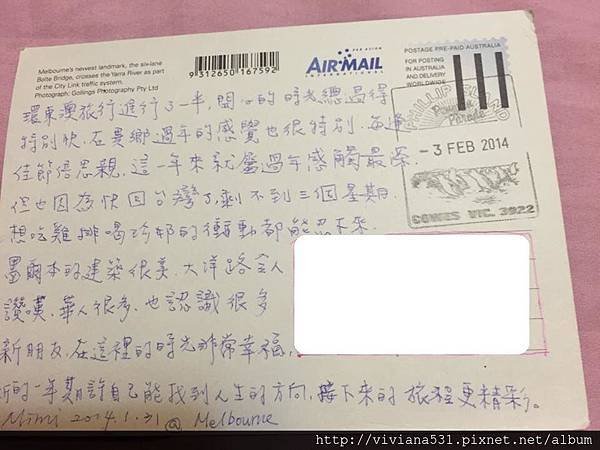 Melbourne's newest landmark, the six-lane
Bolte Bridge, crosses the Yarra River as part
of the City Link traffic system.
Photograph: Gollings Photography Pty Ltd
9 312650 167592
PAR AVION
AIR MAIL
INTERNATIONAL
POSTAGE PRE-PAID AUSTRALIA
FOR POSTING
IN AUSTRALIA
AND DELIVERY
WORLDWIDE
PHILLIP ISLAND
Penguin
Parade
- 3 FEB 2014
COWES VIC. 3922
環東澳旅行進行了一半,開心的時光總過得
特別快,在異鄉過年的感覺也很特別,每逢
佳節倍思親,這一年來就屬過年感觸最深,
但也因為快回台灣了,剩不到三個星期,
想吃雞排喝珍奶的衝動都能忍下來,
墨爾本的建築很美,大洋路令人
讚嘆,華人很多,也認識很多
新朋友,在這裡的時光非常幸福,
新的一年期許自己能找到人生的方向,接下來的旅程更精彩。
Mimi 2014.1.31 @ Melbourne
http://viviana531.pixnet.net/album